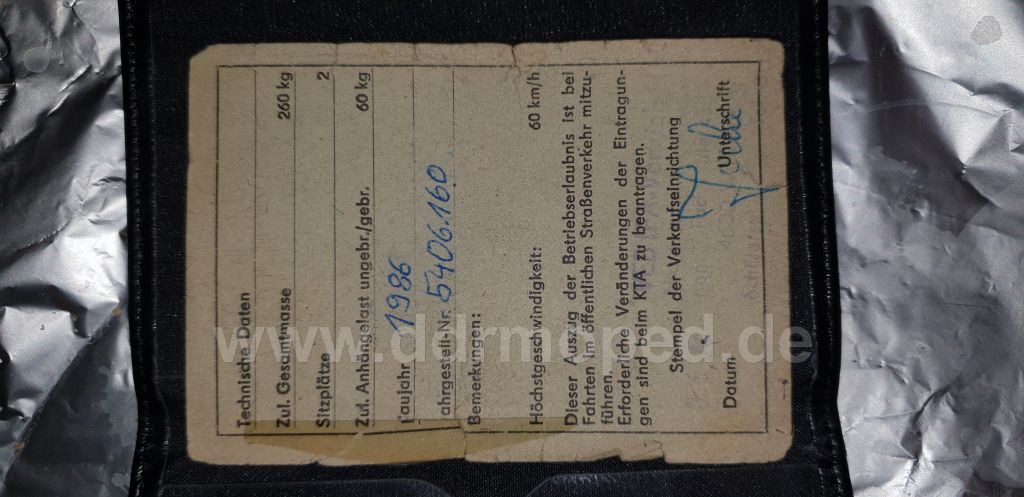 Technische Daten
Zul. Gesamtmasse 260 kg
Sitzplätze 2
Zul. Anhängelast ungebr./gebr. 60 kg
aujahr 1986
ahrgestell-Nr. 5406.160
Bemerkungen:
Höchstgeschwindigkeit: 60 km/h
Dieser Auszug der Betriebserlaubnis ist bei
Fahrten im öffentlichen Straßenverkehr mitzu-
führen.
Erforderliche Veränderungen der Eintragun-
gen sind beim KTA zu beantragen.
Stempel der Verkaufseinrichtung
Datum Unterschrift
www.ddrmoped.de